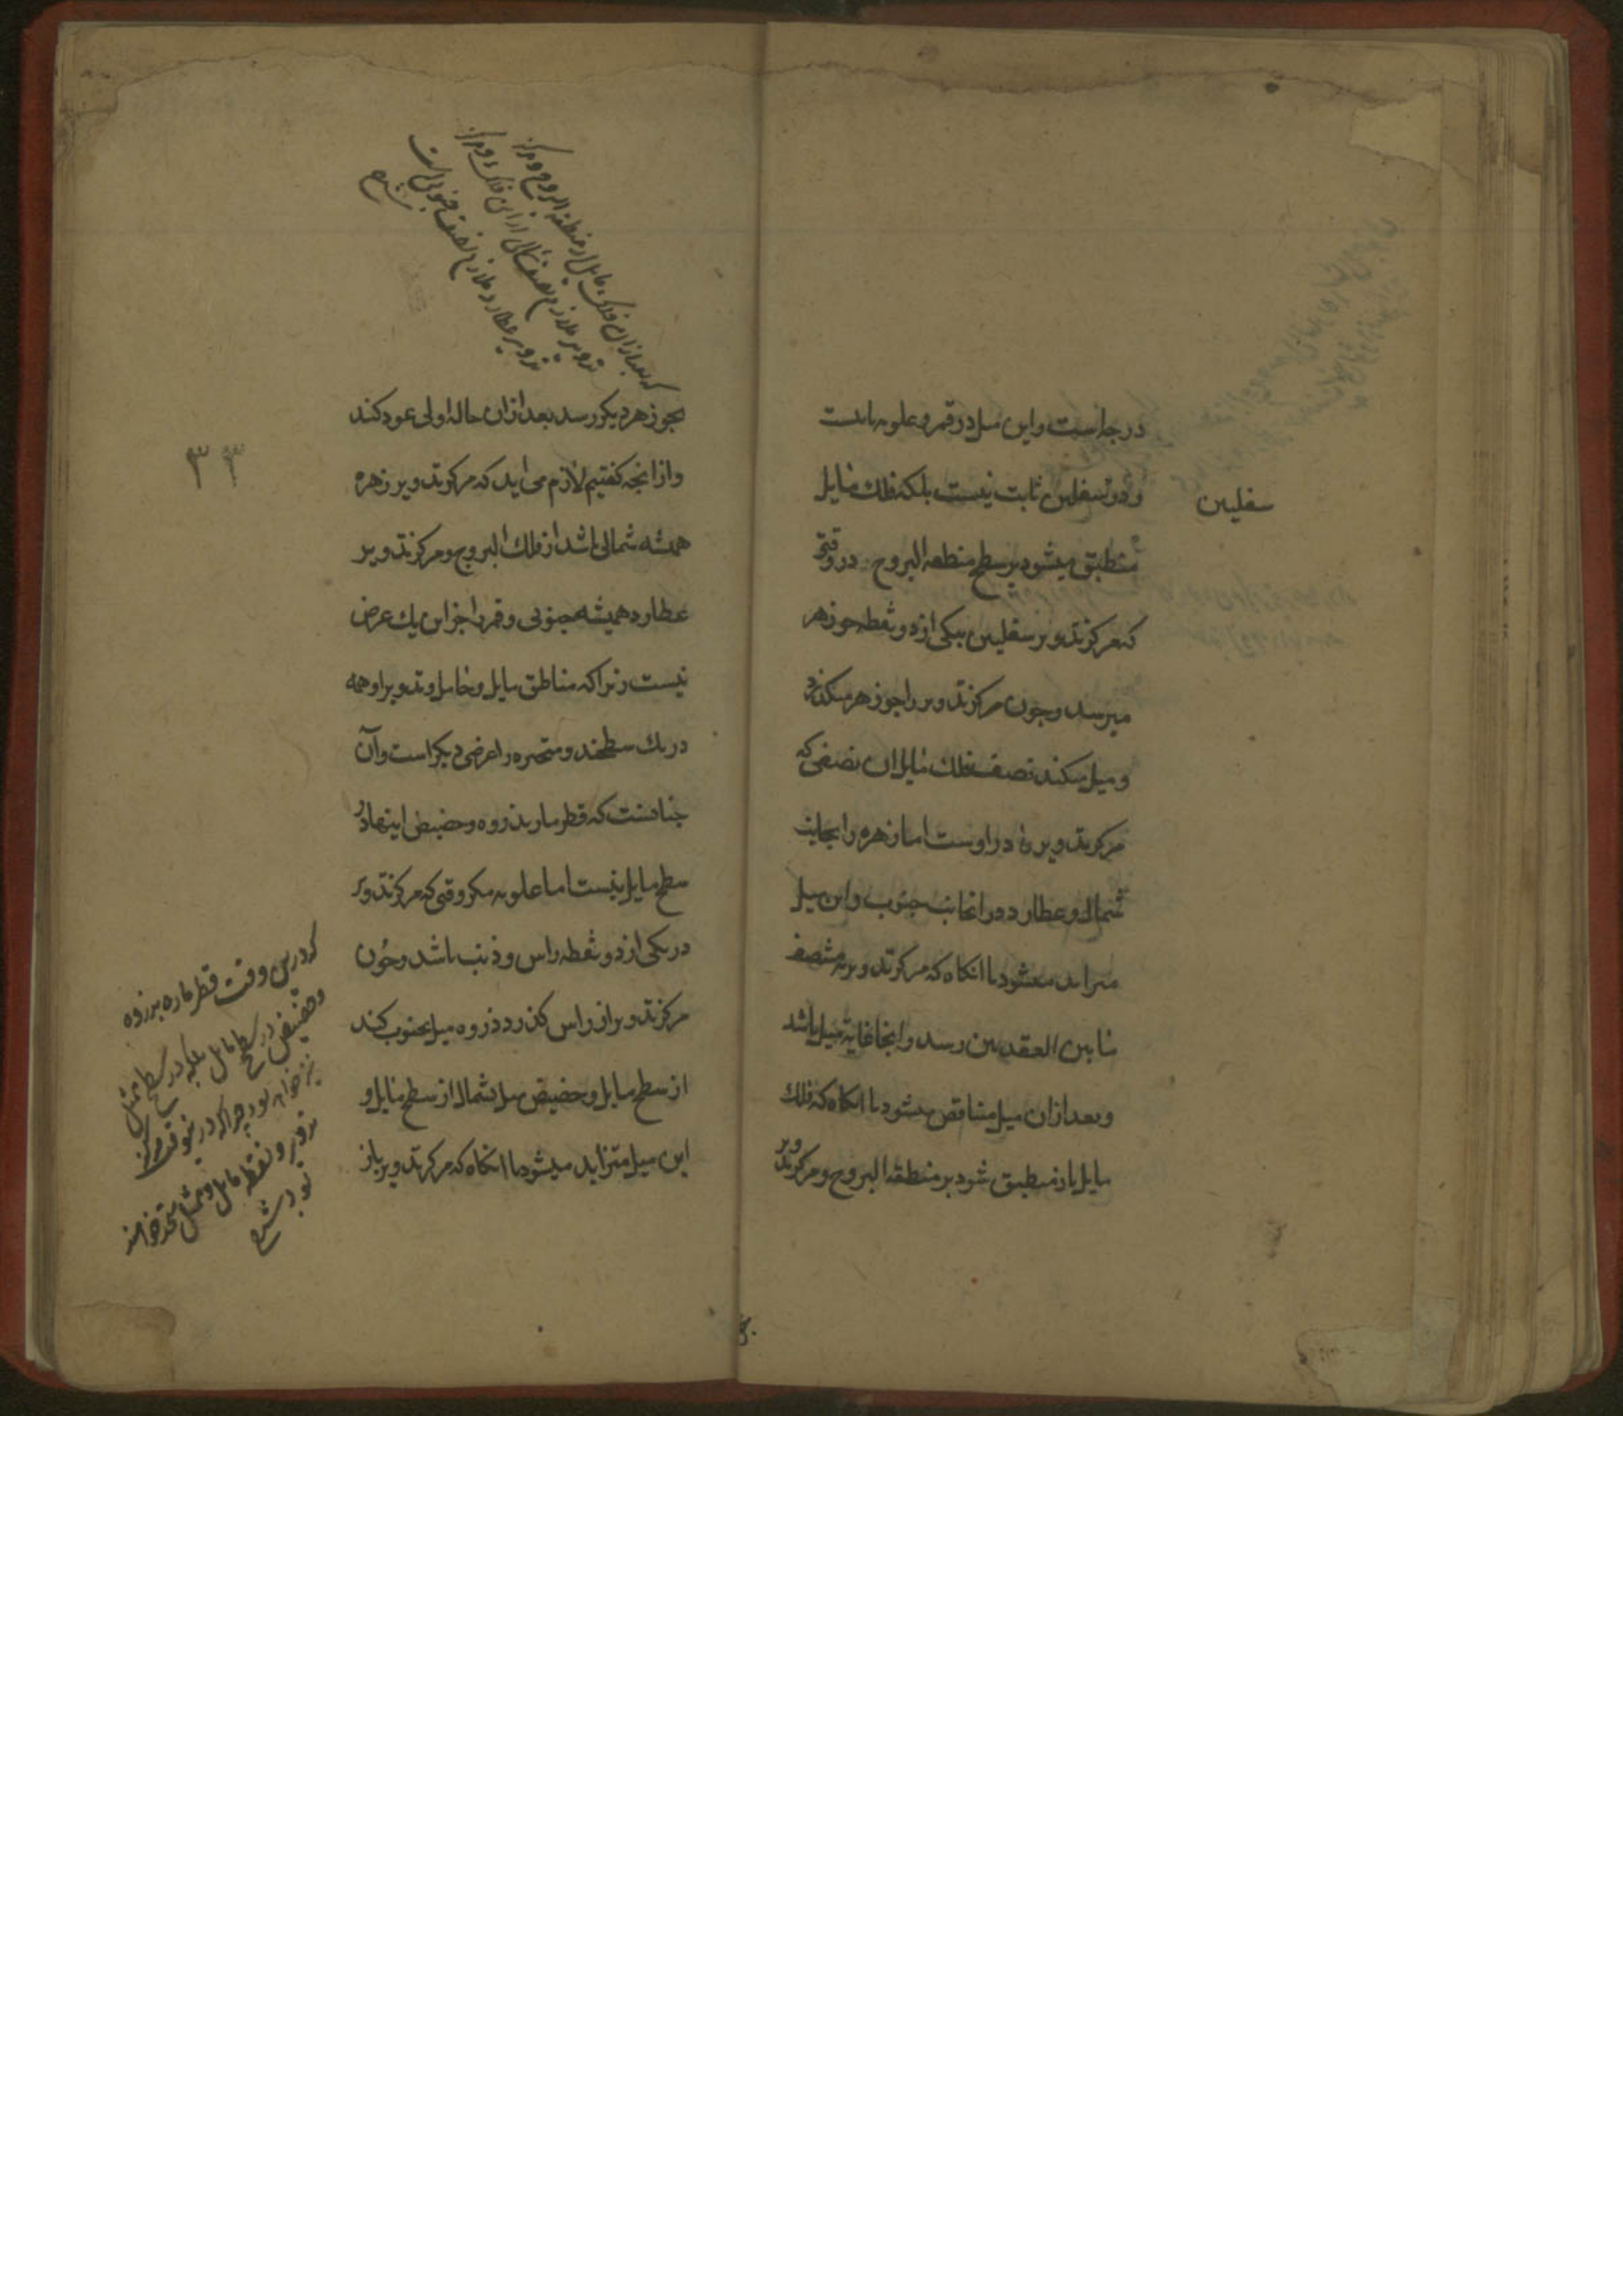 درجه است و این میل در قمر و علویه ثابتست
و در سفلیین ثابت نیست بلکه فلک مایل
سفلیین
منطبق میشود بر سطح منطقه البروج در وقتی
که مرکز تدویر سفلیین بیکی از دو نقطه جوزهر
میرسد و چون مرکز تدویر را جوزهر میکذرد
و میل میکند نصف فلک مایل ان نصفی که
مرکز تدویر در اوست اما زهره را بجانب
شمال و عطارد در را بجانب جنوب و این میل
متزاید میشود تا انکاه که مرکز تدویر بمنتصف
مابین العقدتین رسد و اینجا غایة میل باشد
و بعد ازان میل متناقص میشود تا انکاه که فلک
مایل باز منطبق شود بر منطقه البروج و مرکز تدویر
که بعد ازان فلک مایل از منطقه البروج و مرکز
تدویر ملازم نصف شمالی از این فلک و مرکز
تدویر عطارد ملازم نصف جنوبی است
شرح
بجوزهر دیکر رسد بعد ازان حاله اولی عود کند
۳۳
و ازانجه کفتیم لازم می اید که مرکز تدویر زهره
همیشه شمالی باشد از فلک البروج و مرکز تدویر
عطارد همیشه جنوبی و قمر را جز این یک عرض
نیست زیرا که مناطق مایل و حامل و تدویر او همه
در یک سطحند و متحیره را عرضی دیکر است و آن
جنانست که قطر مار بذروه و حضیض اینها در
سطح مایل نیست اما علویه مکر وقتی که مرکز تدویر
در یکی از دو نقطه راس و ذنب باشد و چون
مرکز تدویر از راس کذرد ذروه میل بجنوب کند
از سطح مایل و حضیض میل بشمال از سطح مایل و
این میل متزاید میشود تا انکاه که مرکز تدویر باز
که درین وقت قطر ماره بذروه
و حضیض در سطح مایل بلکه در سطح ممثل
نیز خواهد بود چرا که در ینوقت مرکز
تدویر و نقطه مایل و ممثل متحد خواهند
بود شرح